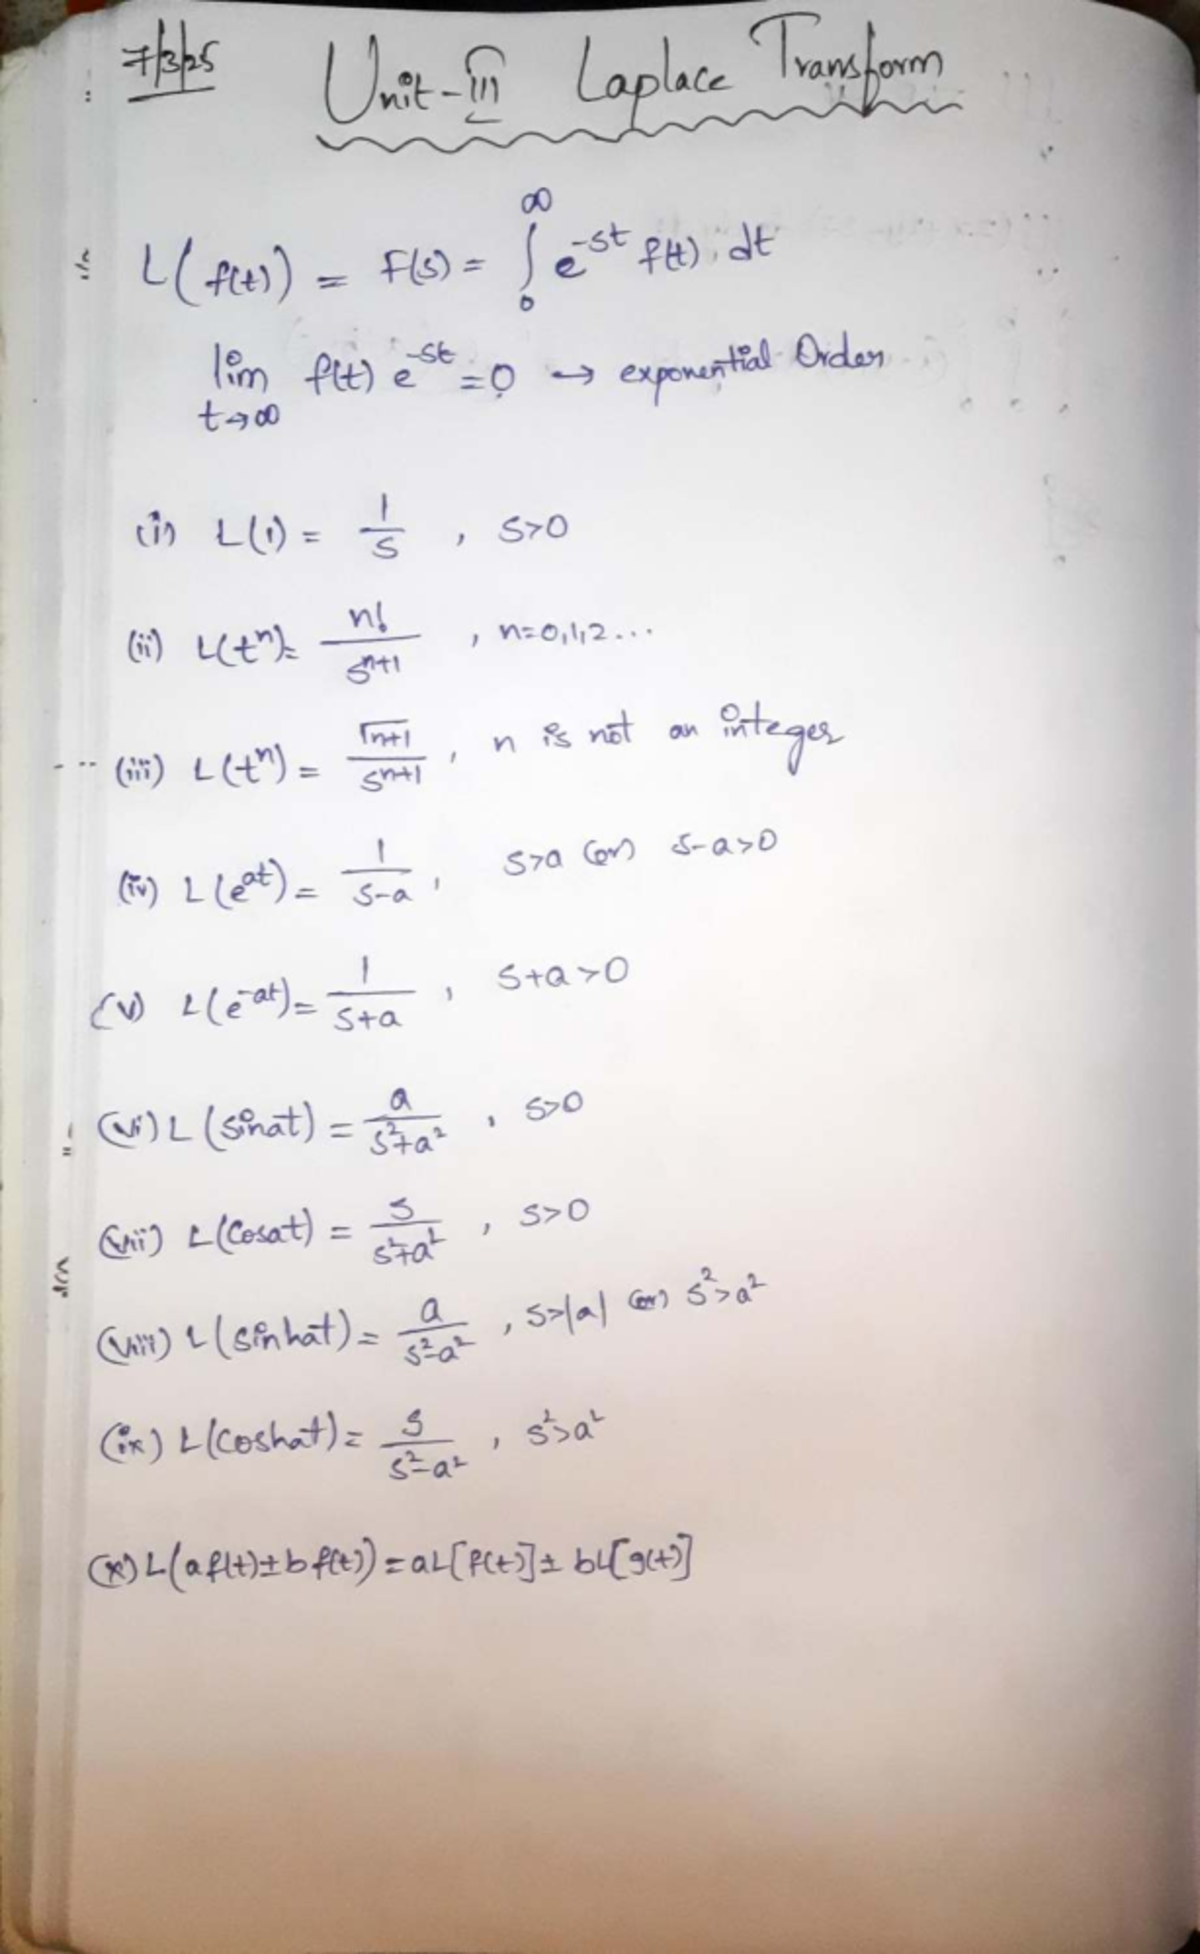 7/3/25
Unit-III Laplace Transform
L(f(t)) = F(s) = ∫₀^∞ e^-st f(t). dt
lim t→∞ f(t) e^-st = 0 → exponential Order
(i) L(1) = 1/s , s>0
(ii) L(t^n) = n!/s^n+1 , n=0,1,2...
(iii) L(t^n) = Γn+1/s^n+1 , n is not an integer
(iv) L(e^at) = 1/s-a , s>a (or) s-a>0
(v) L(e^-at) = 1/s+a , s+a>0
(vi) L(sinat) = a/s²+a² , s>0
(vii) L(Cosat) = s/s²+a² , s>0
(viii) L(sinhat) = a/s²-a² , s>|a| (or) s²>a²
(ix) L(coshat) = s/s²-a² , s²>a²
(x) L(af(t)±bf(t)) = aL[f(t)]± bL[g(t)]